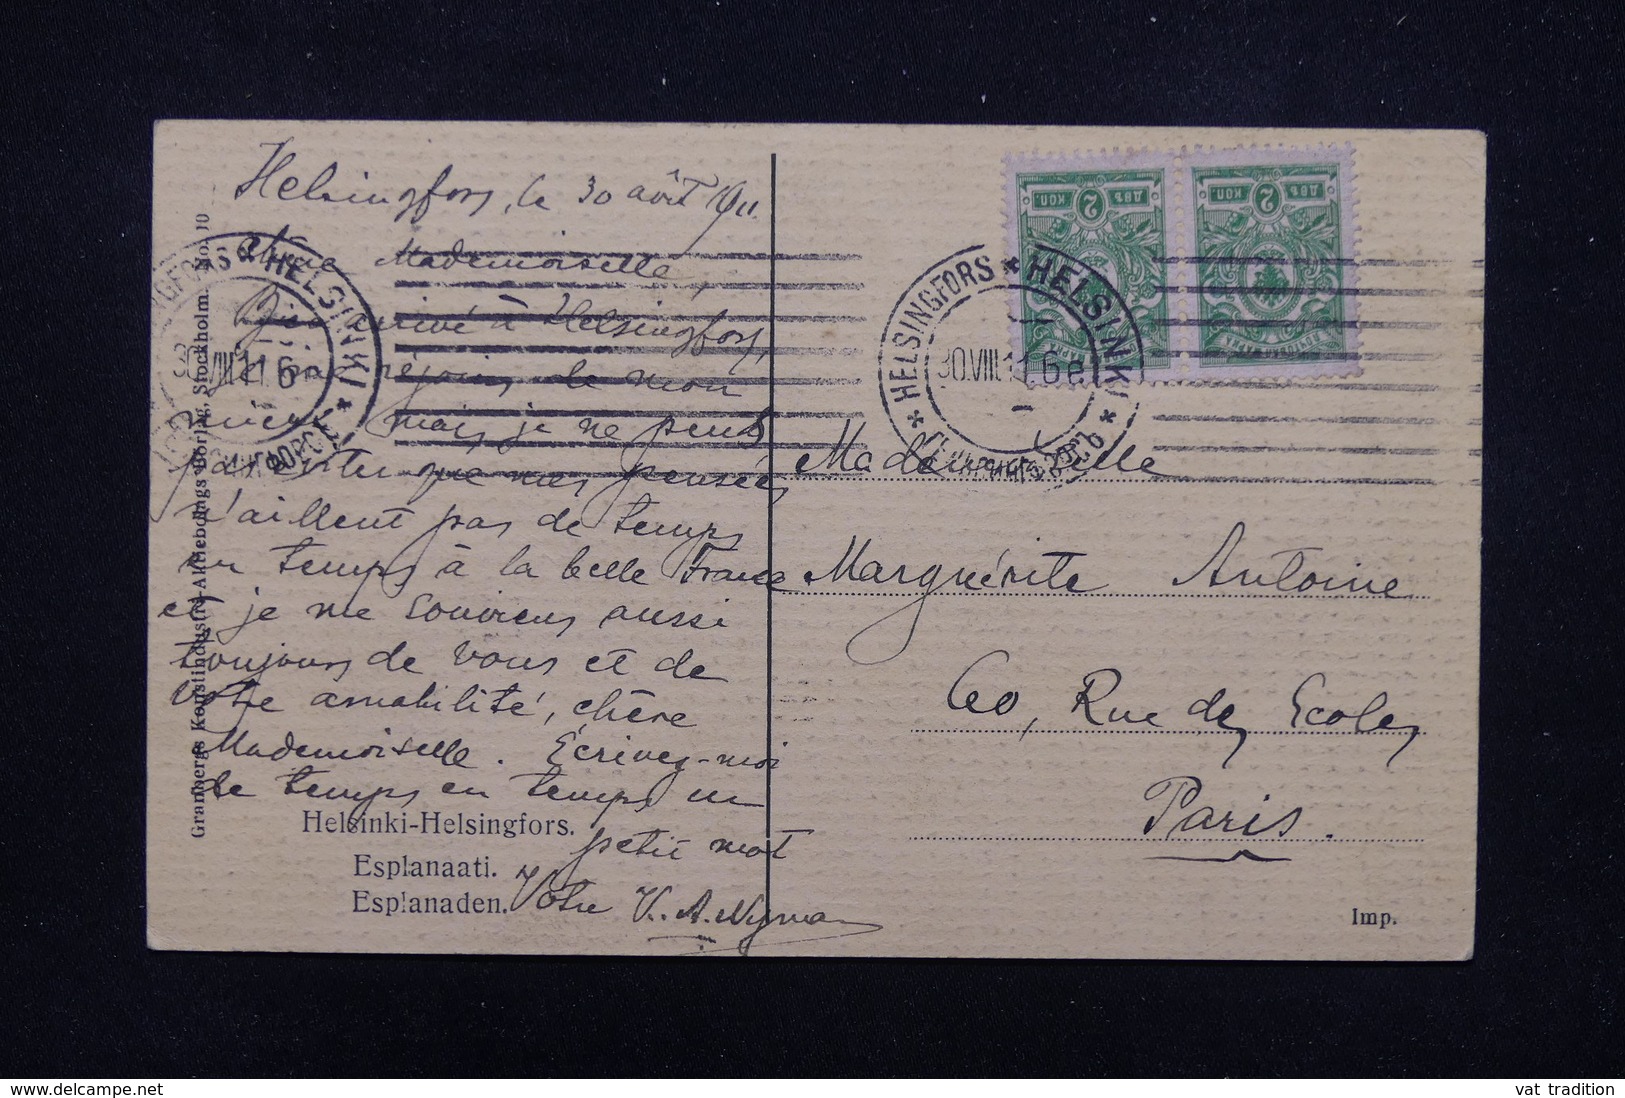 Helsingfors, le 30 août 1911.
Chère Mademoiselle,
Bien arrivé à Helsingfors,
je me réjouis de mon
mais je ne peux
pas éviter que mes pensées
n'aillent pas de temps
en temps à la belle France
et je me souviens aussi
toujours de vous et de
votre amabilité, chère
Mademoiselle. Écrivez-moi
de temps en temps un
petit mot
Votre K. A. Nyman
Helsinki-Helsingfors.
Esplanaati.
Esplanaden.
Granbergs Konstindustri-Aktiebolags Förlag, Stockholm. No. 10
HELSINGFORS * HELSINKI *
30.VIII.11 6
ДВѢ 2 КОП.
ДВѢ 2 КОП.
* HELSINGFORS * HELSINKI * ГЕЛЬСИНГФОРСЪ
30.VIII.11 6 e
Mademoiselle
Marguérite Antoine
60, Rue des Ecoles
Paris.
Imp.
www.delcampe.net
vat tradition